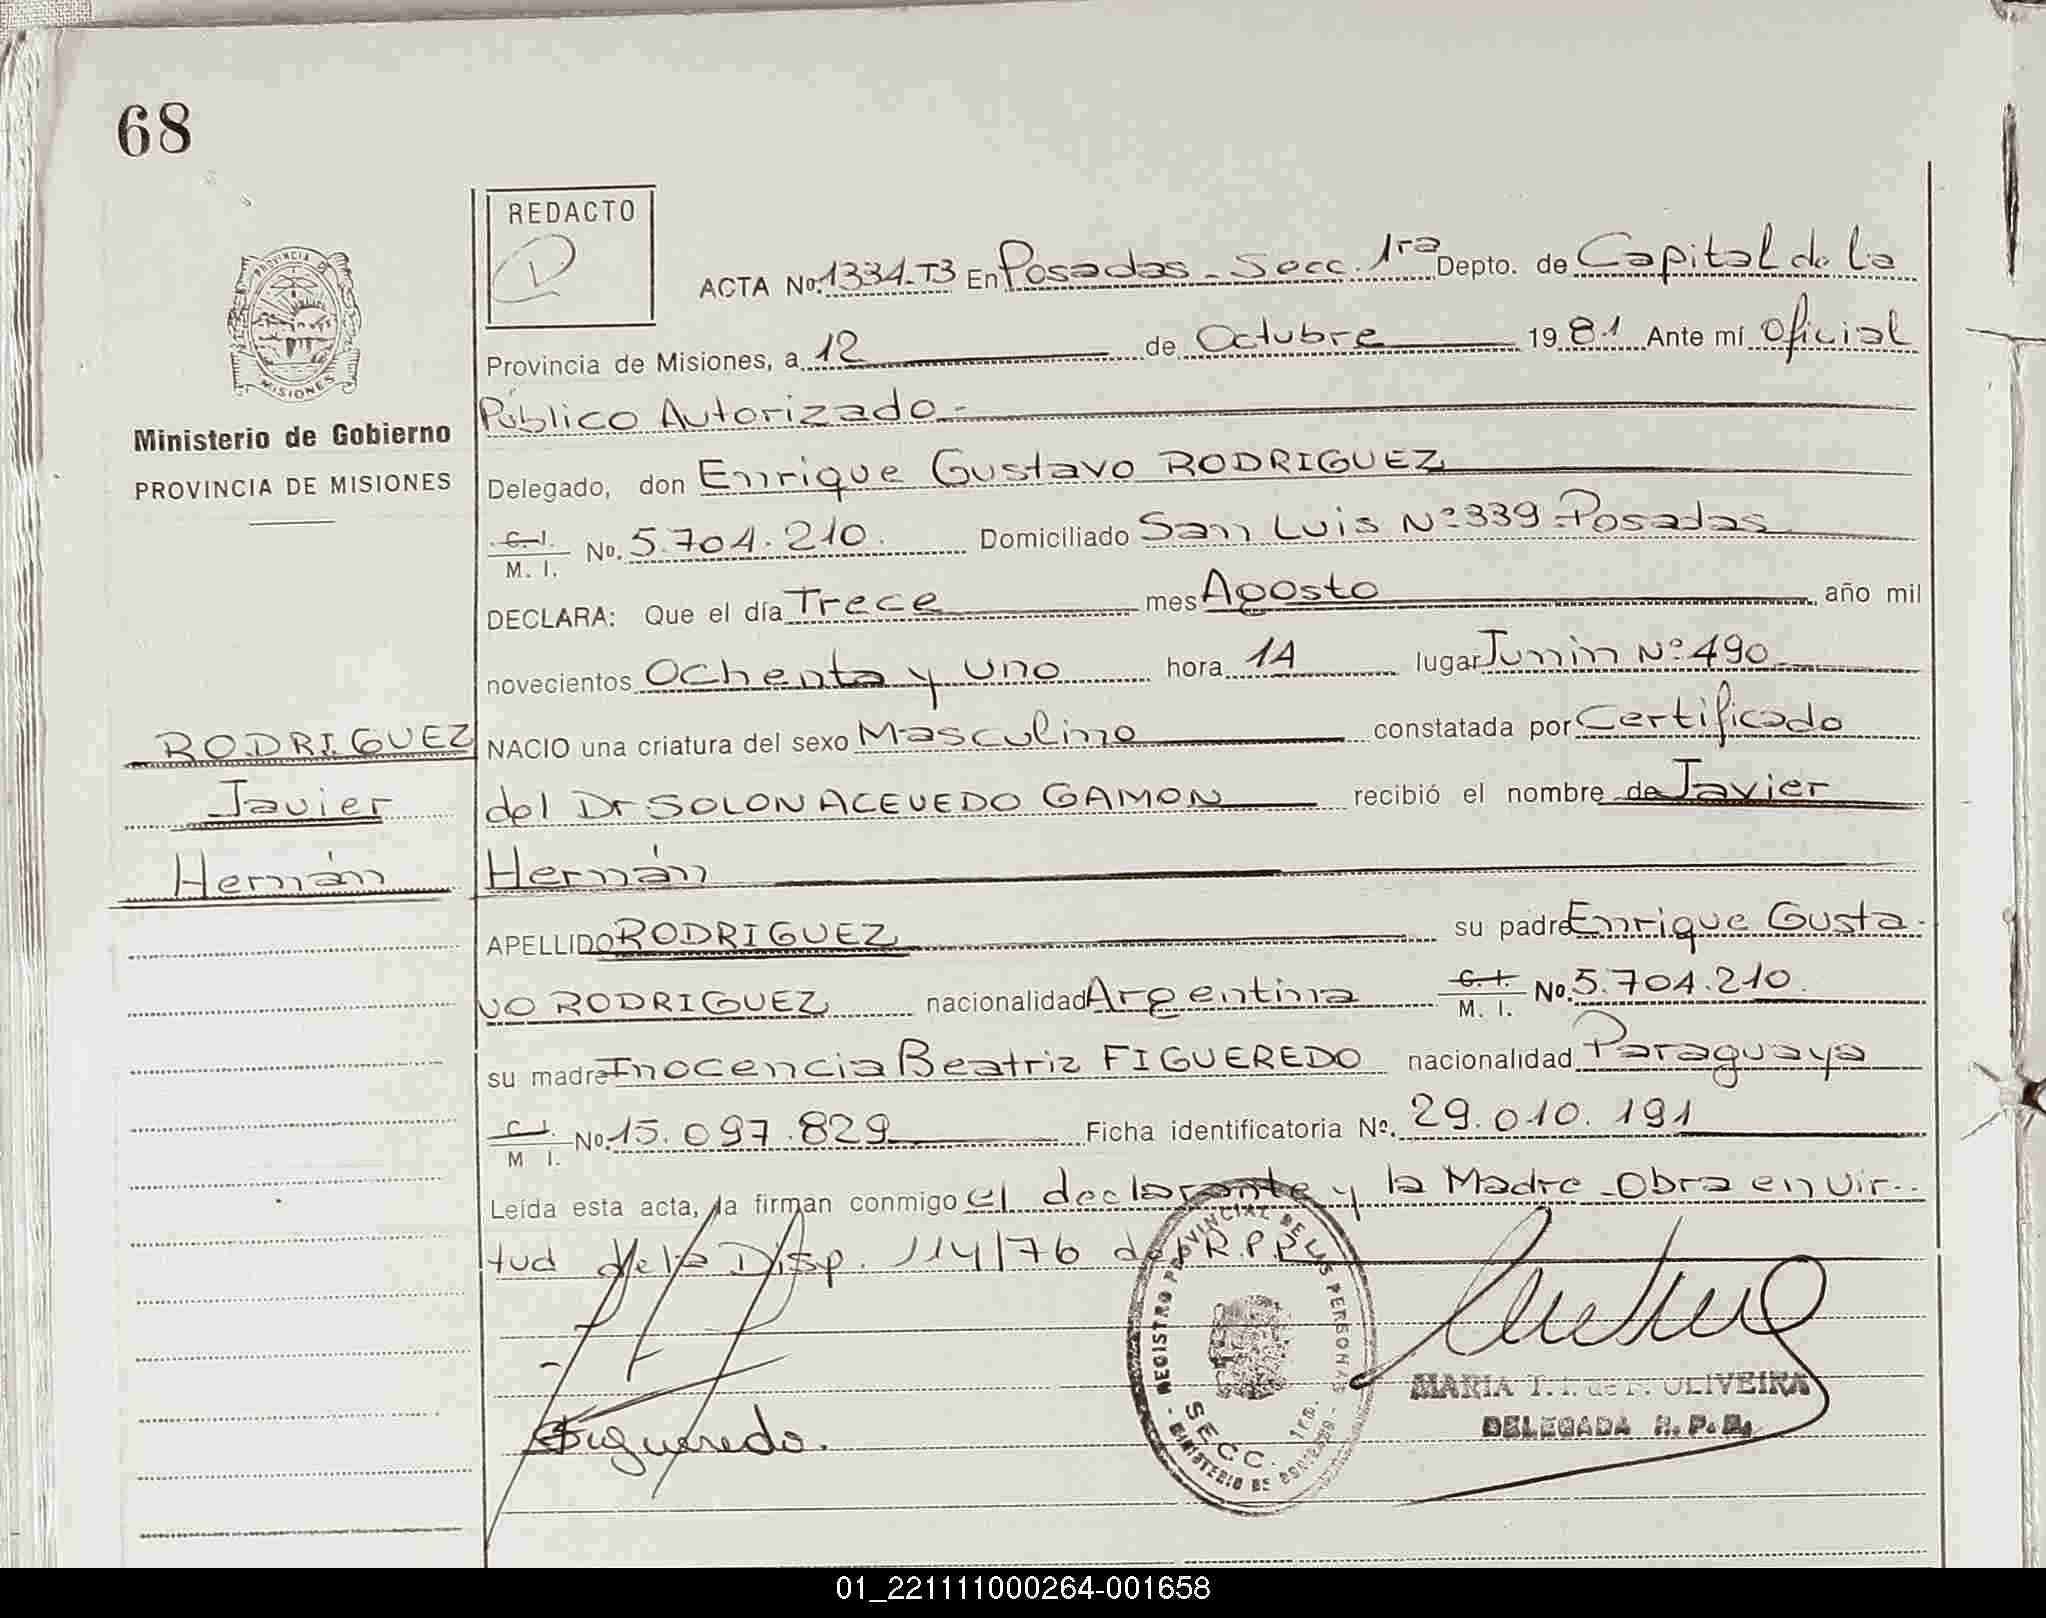 68
REDACTO
PROVINCIA DE
MISIONES
Ministerio de Gobierno
PROVINCIA DE MISIONES
RODRIGUEZ
Javier
Hernán
ACTA No. 1334-T3 En Posadas - Secc. 1ra Depto. de Capital de la
Provincia de Misiones, a 12 de Octubre 1981 Ante mí Oficial
Público Autorizado.-
Delegado, don Enrique Gustavo RODRIGUEZ
C.I. M. I. No. 5.704.210. Domiciliado San Luis Nº 339 - Posadas
DECLARA: Que el día Trece mes Agosto año mil
novecientos Ochenta y uno hora 14 lugar Junin Nº 490
NACIO una criatura del sexo Masculino constatada por Certificado
del Dr SOLON ACEVEDO GAMON recibió el nombre de Javier
Hernán
APELLIDO RODRIGUEZ su padre Enrique Gusta-
vo RODRIGUEZ nacionalidad Argentina C.I. M. I. No. 5.704.210.
su madre Inocencia Beatriz FIGUEREDO nacionalidad Paraguaya
C.I. M I. No. 15.097.829 Ficha identificatoria No. 29.010.191
Leída esta acta, la firman conmigo el declarante y la Madre - Obra en vir-
tud de la Disp. 114/76 del R.P.P
Figueredo.
REGISTRO PROVINCIAL DE LAS PERSONAS
SECC. 1ra.
MINISTERIO DE GOBIERNO
MARIA T. I. de OLIVEIRA
DELEGADA R. P. P.
01_221111000264-001658